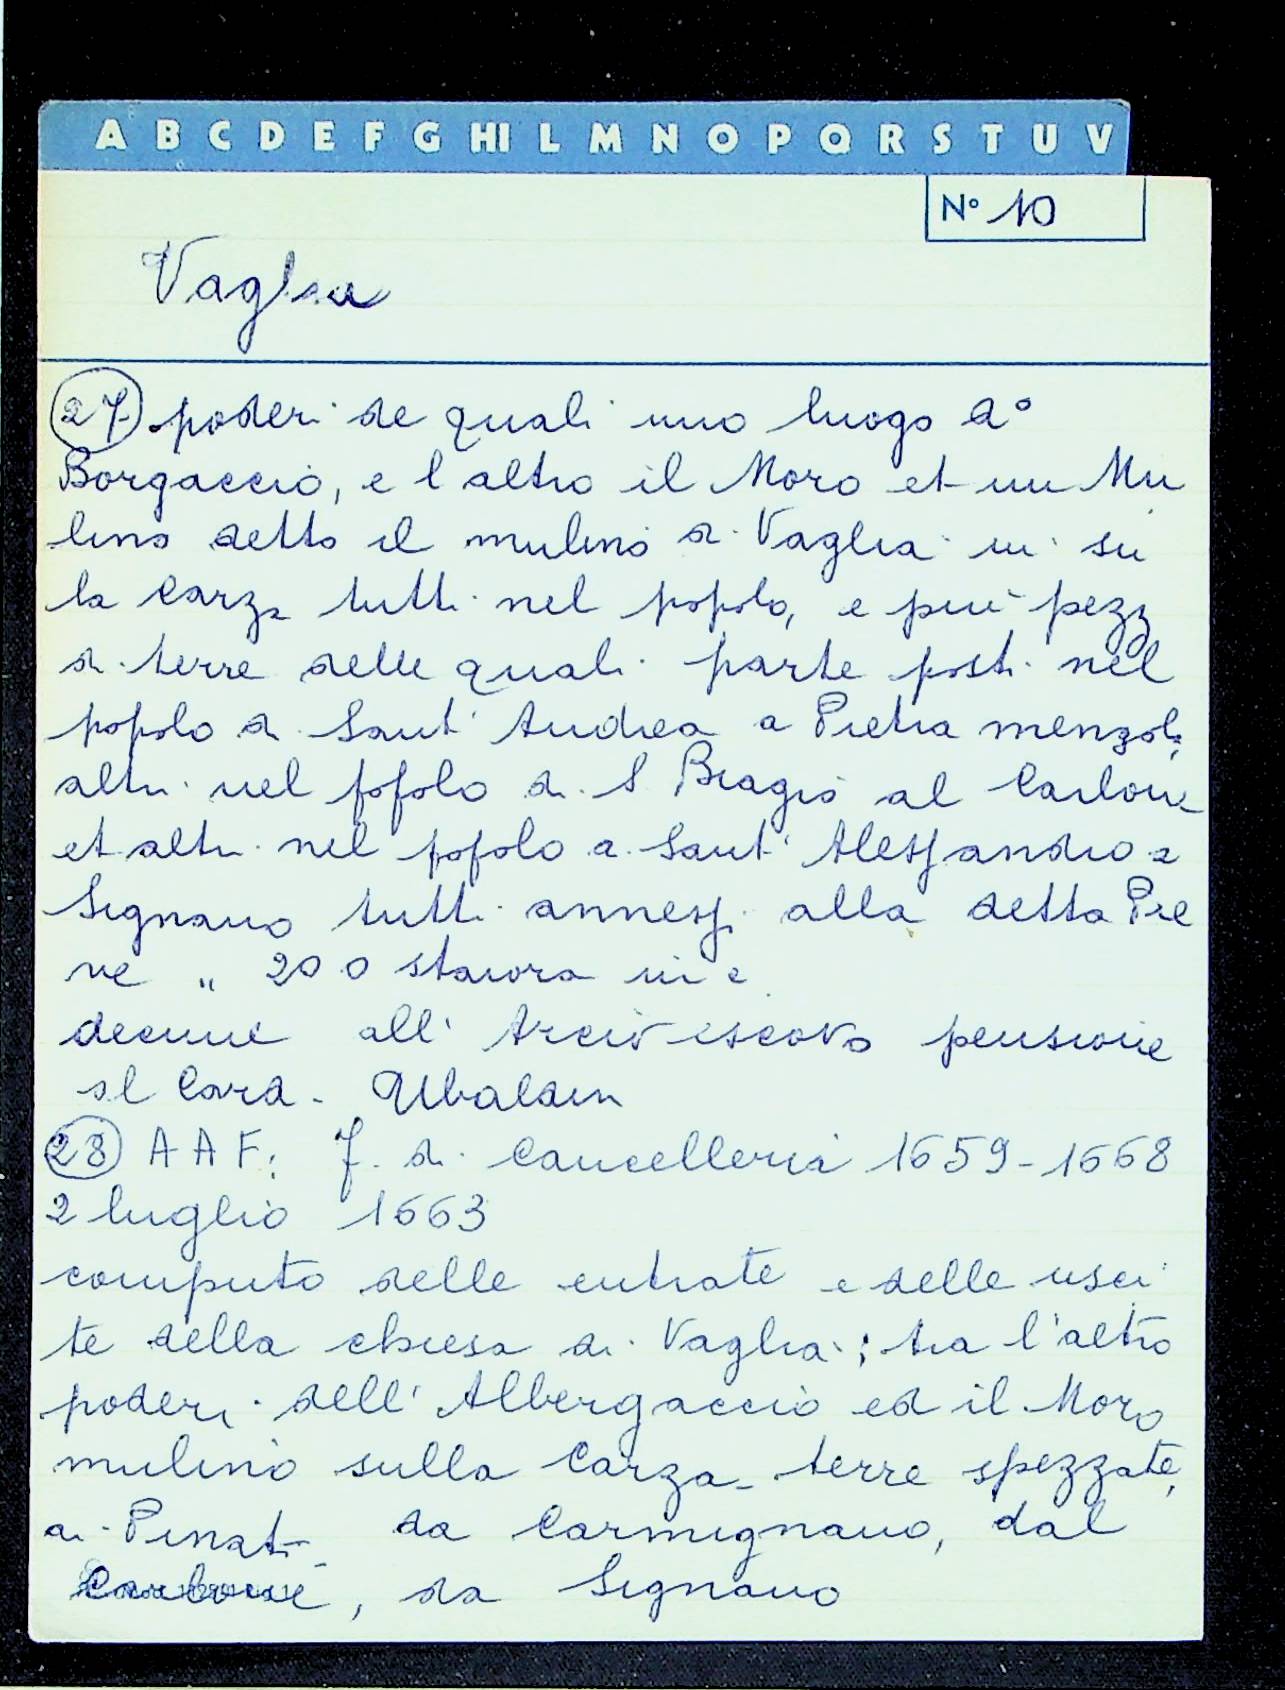 A B C D E F G HI L M N O P Q R S T U V
N° 10
Vaglia
27 poderi de quali uno luogo d°
Borgaccio, e l altro il Moro et un Mu
lino detto il mulino di Vaglia in su
la Carza tutti nel popolo, e più pezz
di terre delle quali parte posti nel
popolo di Sant' Andrea a Pietra menzola,
altri nel popolo di S Biagio al Carlone
et altri nel popolo a Sant' Alessandro a
Signano tutti annessi alla detta Pie
ve " 200 staiora
decime all' Arcivescovo pensione
al Card. Ubaldin
28 A A F: f. di Cancelleria 1659-1668
2 luglio 1663
computo delle entrate e delle usci
te della chiesa di Vaglia; tra l'altro
poderi dell' Albergaccio ed il Moro
mulino sulla Carza terre spezzate,
ai Pinati da Carmignano, dal
Carlone, da Signano